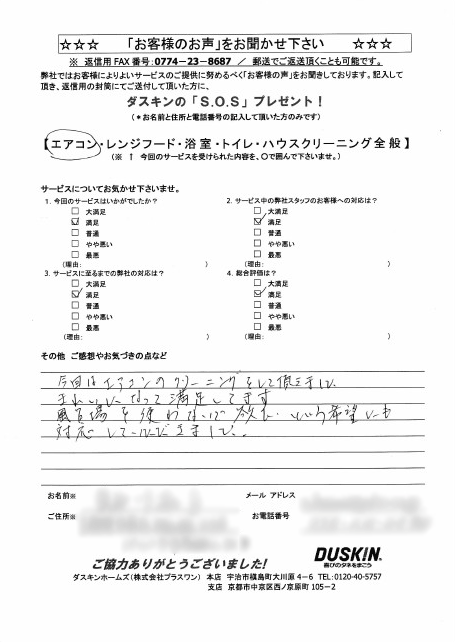 ☆☆☆ 「お客様のお声」をお聞かせ下さい ☆☆☆
※ 返信用 FAX 番号:0774-23-8687 / 郵送でご返送頂くことも可能です。
弊社ではお客様によりよいサービスのご提供に努めるべく「お客様の声」をお聞きしております。記入して
頂き、返信用の封筒にてご送付して頂いた方に、
ダスキンの「S.O.S」プレゼント!
(*お名前と住所と電話番号の記入して頂いた方のみです)
【エアコン・レンジフード・浴室・トイレ・ハウスクリーニング全般】
(※ ↑ 今回のサービスを受けられた内容を、〇で囲んで下さいませ。)
サービスについてお気かせ下さいませ。
1. 今回のサービスはいかがでしたか?
□ 大満足
☑ 満足
□ 普通
□ やや悪い
□ 最悪
(理由: )
2. サービス中の弊社スタッフのお客様への対応は?
□ 大満足
☑ 満足
□ 普通
□ やや悪い
□ 最悪
(理由: )
3. サービスに至るまでの弊社の対応は?
□ 大満足
☑ 満足
□ 普通
□ やや悪い
□ 最悪
(理由: )
4. 総合評価は?
□ 大満足
☑ 満足
□ 普通
□ やや悪い
□ 最悪
(理由: )
その他 ご感想やお気づきの点など
今回はエアコンのクリーニングをして頂きまして、
きれいになって満足してます
風呂場を使わないで欲しいという希望にも
対応していただきました。
お名前※
メール アドレス
ご住所※
お電話番号
ご協力ありがとうございました!
DUSKIN
喜びのタネをまこう
ダスキンホームズ(株式会社プラスワン) 本店 宇治市槇島町大川原 4-6 TEL:0120-40-5757
支店 京都市中京区西ノ京原町 105-2